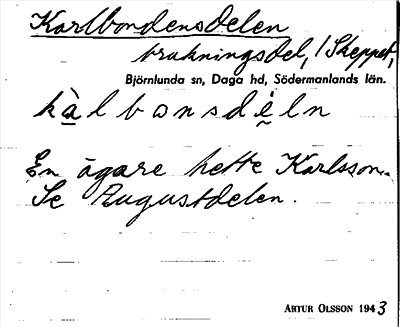 Karlbondensdelen
brukningsdel, i Skeppet,
Björnlunda sn, Daga hd, Södermanlands län.
kàlbonsdéln
En ägare hette Karlsson.
Se Augustdelen.
ARTUR OLSSON 1943